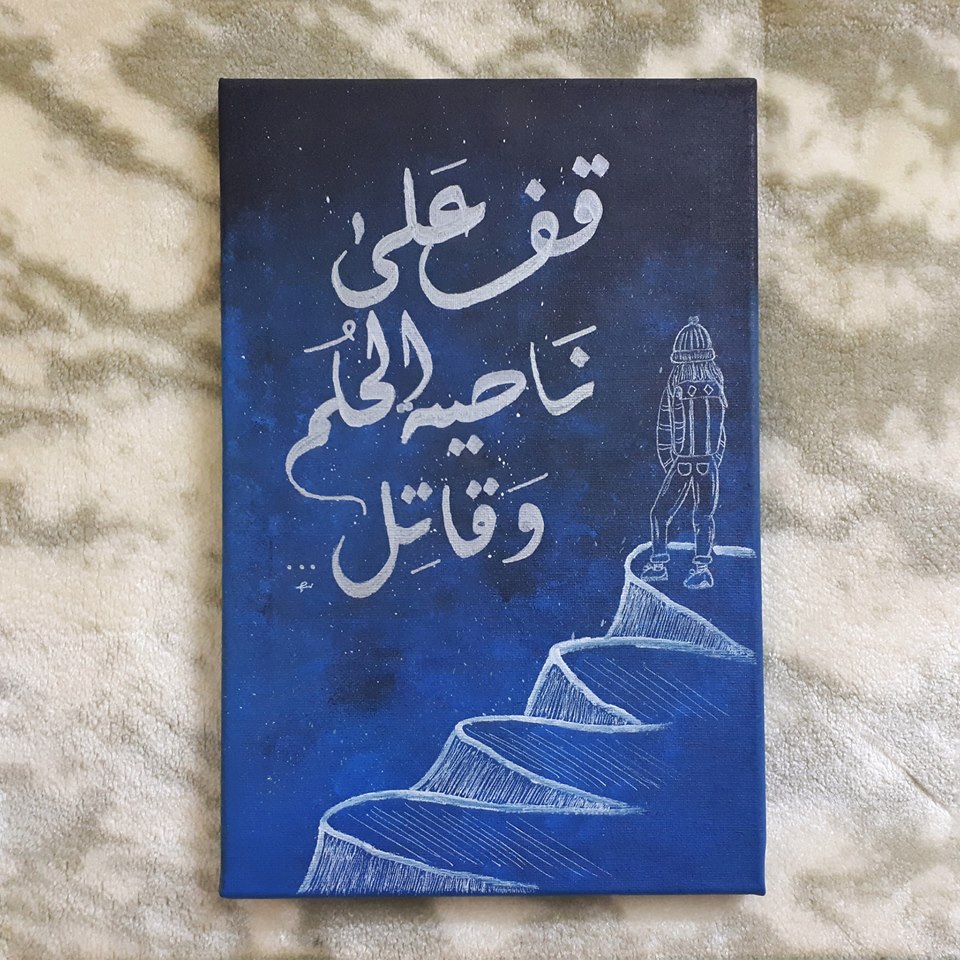 قف عَلىٰ
نَاصية الحُلم
وَقاتِل
...